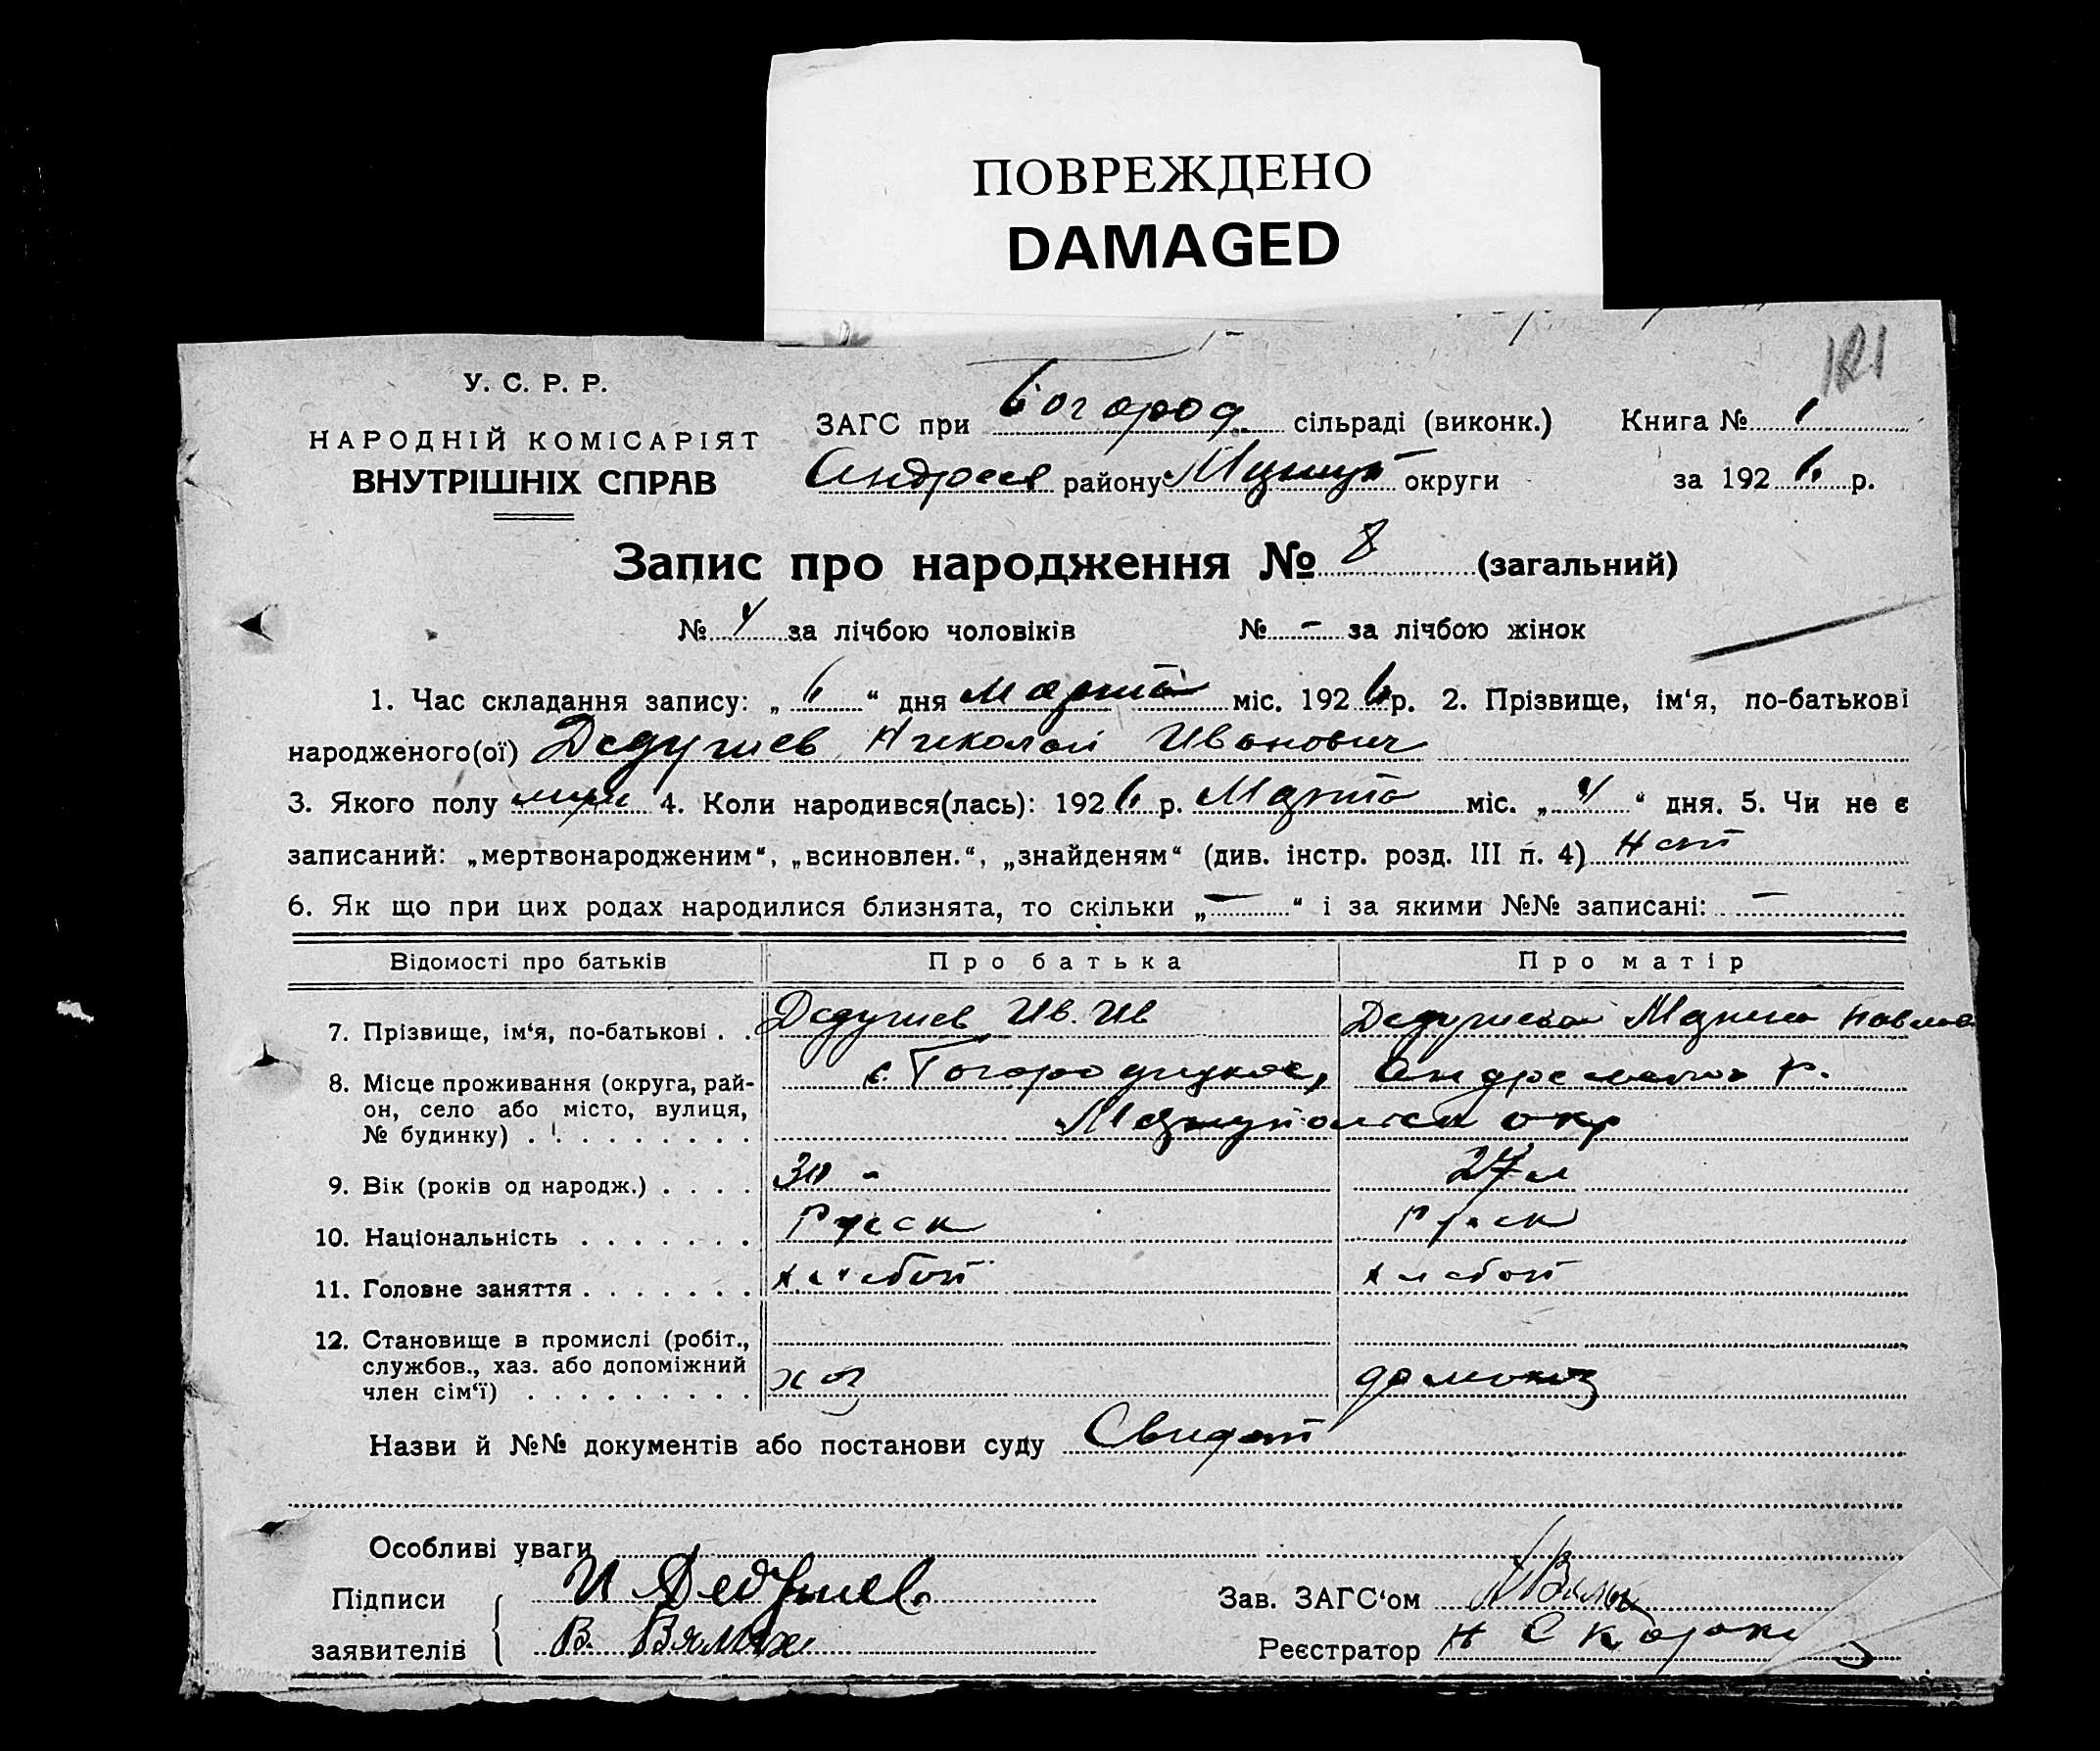 ПОВРЕЖДЕНО
DAMAGED
121
У. С. Р. Р.
НАРОДНІЙ КОМІСАРІЯТ
ВНУТРІШНІХ СПРАВ
ЗАГС при Богород. сільраді (виконк.) Книга № 1
Андреев району Мариуп округи за 1926 р.
Запис про народження № 8 (загальний)
№ 4 за лічбою чоловіків № - за лічбою жінок
1. Час складання запису: „ 6 “ дня Марта міс. 1926 р. 2. Прізвище, ім‘я, по-батькові
народженого(ої) Дедушев Николай Иванович
3. Якого полу муж 4. Коли народився(лась): 1926 р. Марта міс. „ 4 “ дня. 5. Чи не є
записаний: „мертвонародженим“, „всиновлен.“, „знайденям“ (див. інстр. розд. III п. 4) Нет
6. Як що при цих родах народилися близнята, то скільки „ — “ і за якими №№ записані: —
Відомості про батьків Про батька Про матір
7. Прізвище, ім‘я, по-батькові . . Дедушев Ив. Ив Дедушева Павлов
8. Місце проживання (округа, рай- с. Богородицкое, Андреевского р.
он, село або місто, вулиця, Мариупольск окр
№ будинку) . . . . . . . . .
9. Вік (років од народж.) . . . . 30 27 л
10. Національність . . . . . . . Русск Русск
11. Головне заняття . . . . . . . хлебоп хлебоп
12. Становище в промислі (робіт.,
службов., хаз. або допоміжний
член сім‘ї) . . . . . . . . . хоз домохоз
Назви й №№ документів або постанови суду Свидет
Особливі уваги
Підписи И Дедушев. Зав. ЗАГС‘ом
заявителів В. Вялых Реєстратор Н